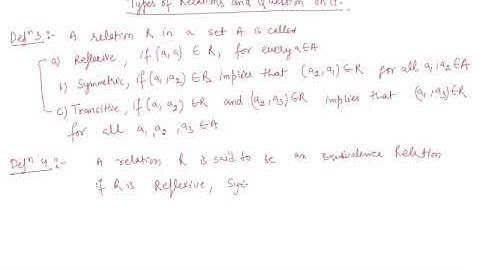 Types of Relations and Question on it.
Defⁿ 3:- A relation R in a set A is called
a) Reflexive, if (a, a) ∈ R, for every a∈A
b) Symmetric, if (a₁, a₂) ∈ R implies that (a₂, a₁) ∈ R for all a₁, a₂ ∈ A
c) Trancitive, if (a₁, a₂) ∈ R and (a₂, a₃) ∈ R implies that (a₁, a₃) ∈ R
for all a₁, a₂, a₃ ∈ A
Defⁿ 4:- A relation R is said to be an Equivalence Relation
if R is Reflexive, Sy